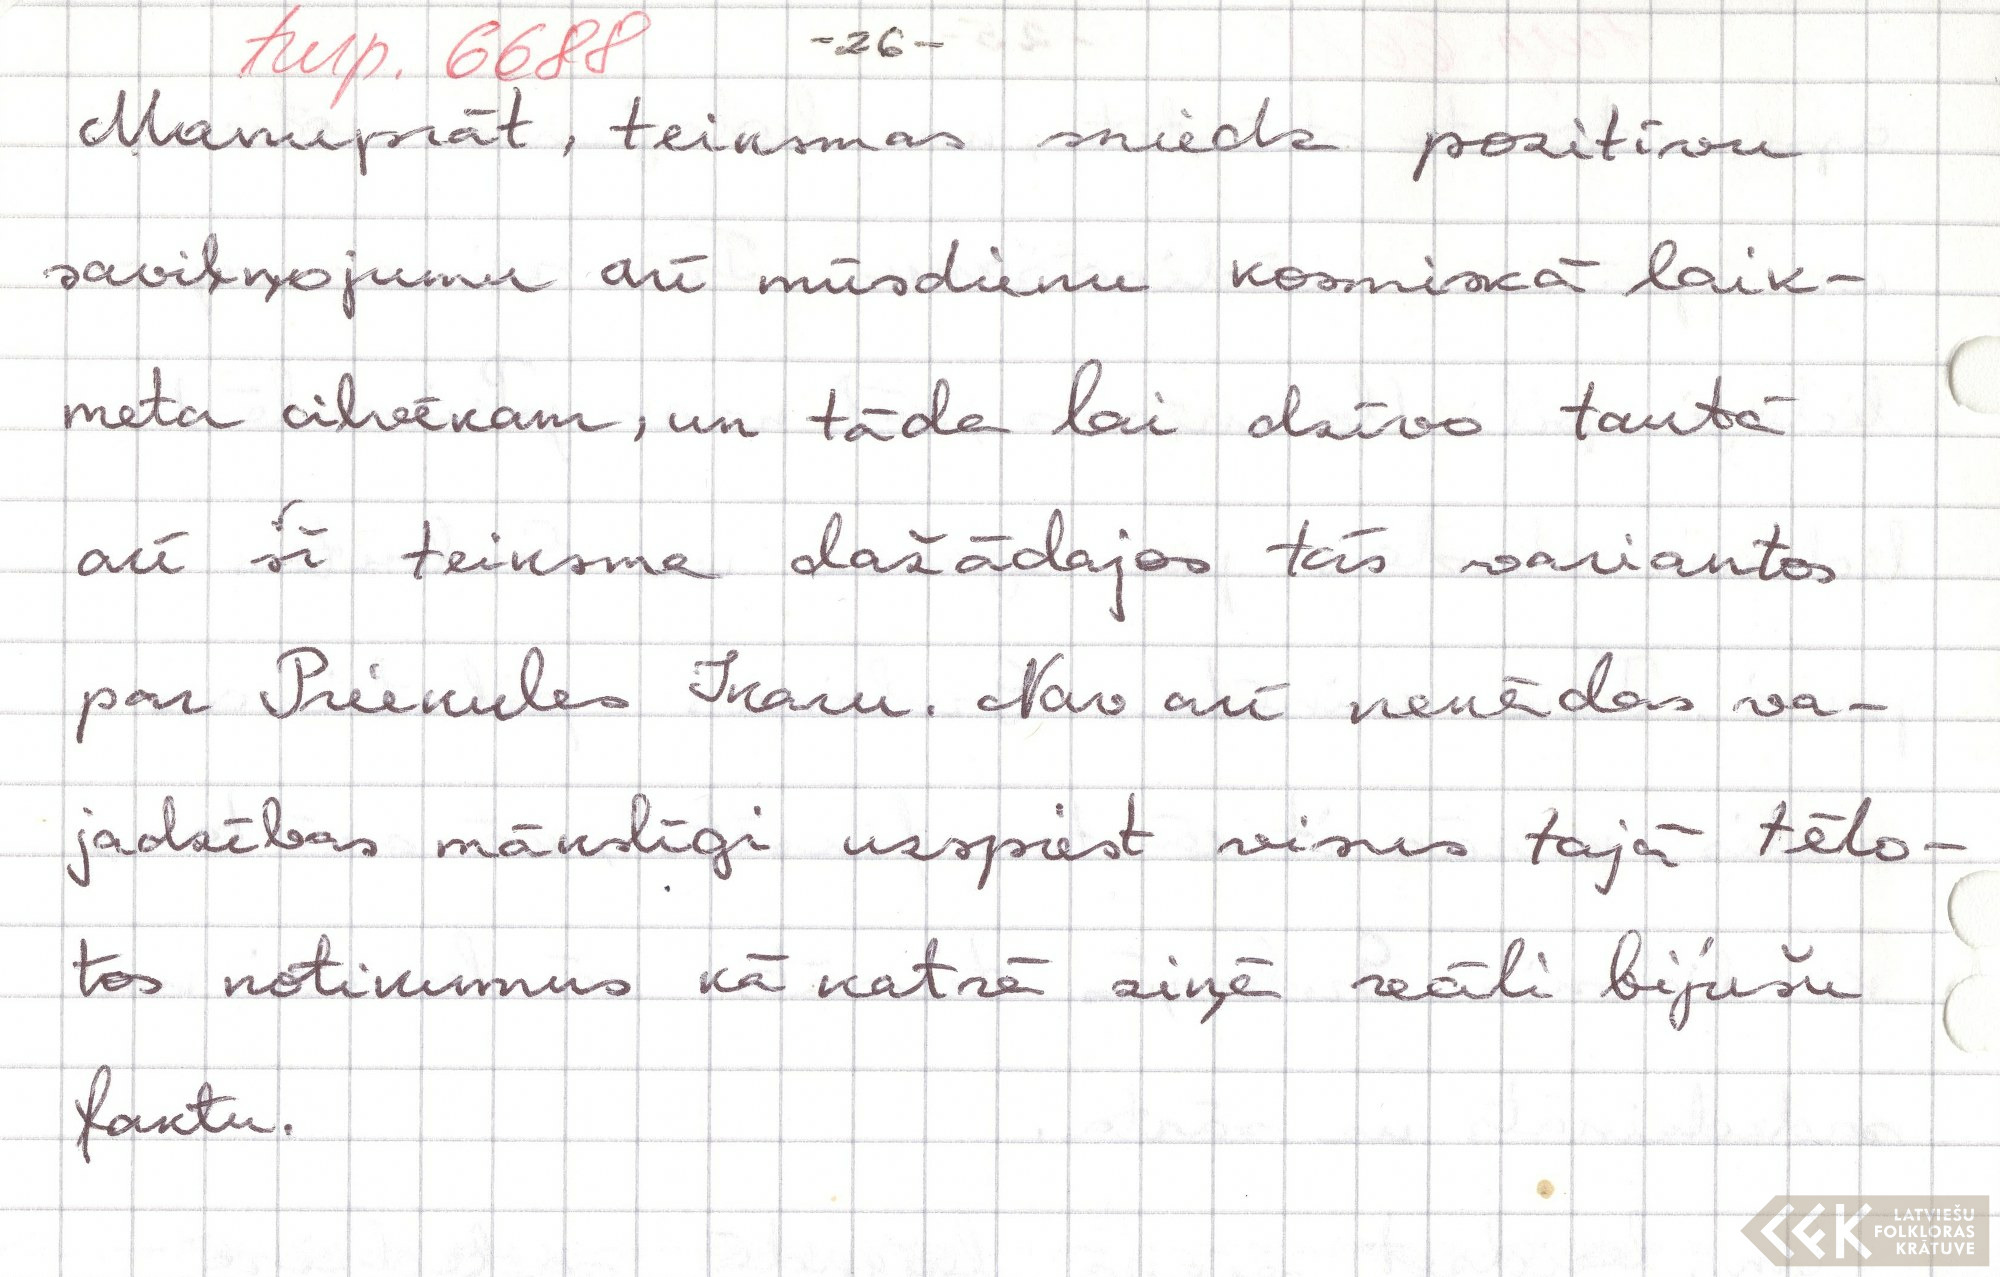 turp. 6688 -26-
Manuprāt, teiksmas sniedz pozitīvu
saviļņojumu arī mūsdienu kosmiskā laik-
meta cilvēkam, un tāda lai dzīvo tautā
arī šī teiksma dažādajos tās variantos
par Priekules Ikaru. Nav arī nekādas va-
jadzības mākslīgi uzspiest visus tajā tēlo-
tos notikumus kā katrā ziņā reāli bijušu
faktu.
LATVIEŠU
FOLKLORAS
KRĀTUVE